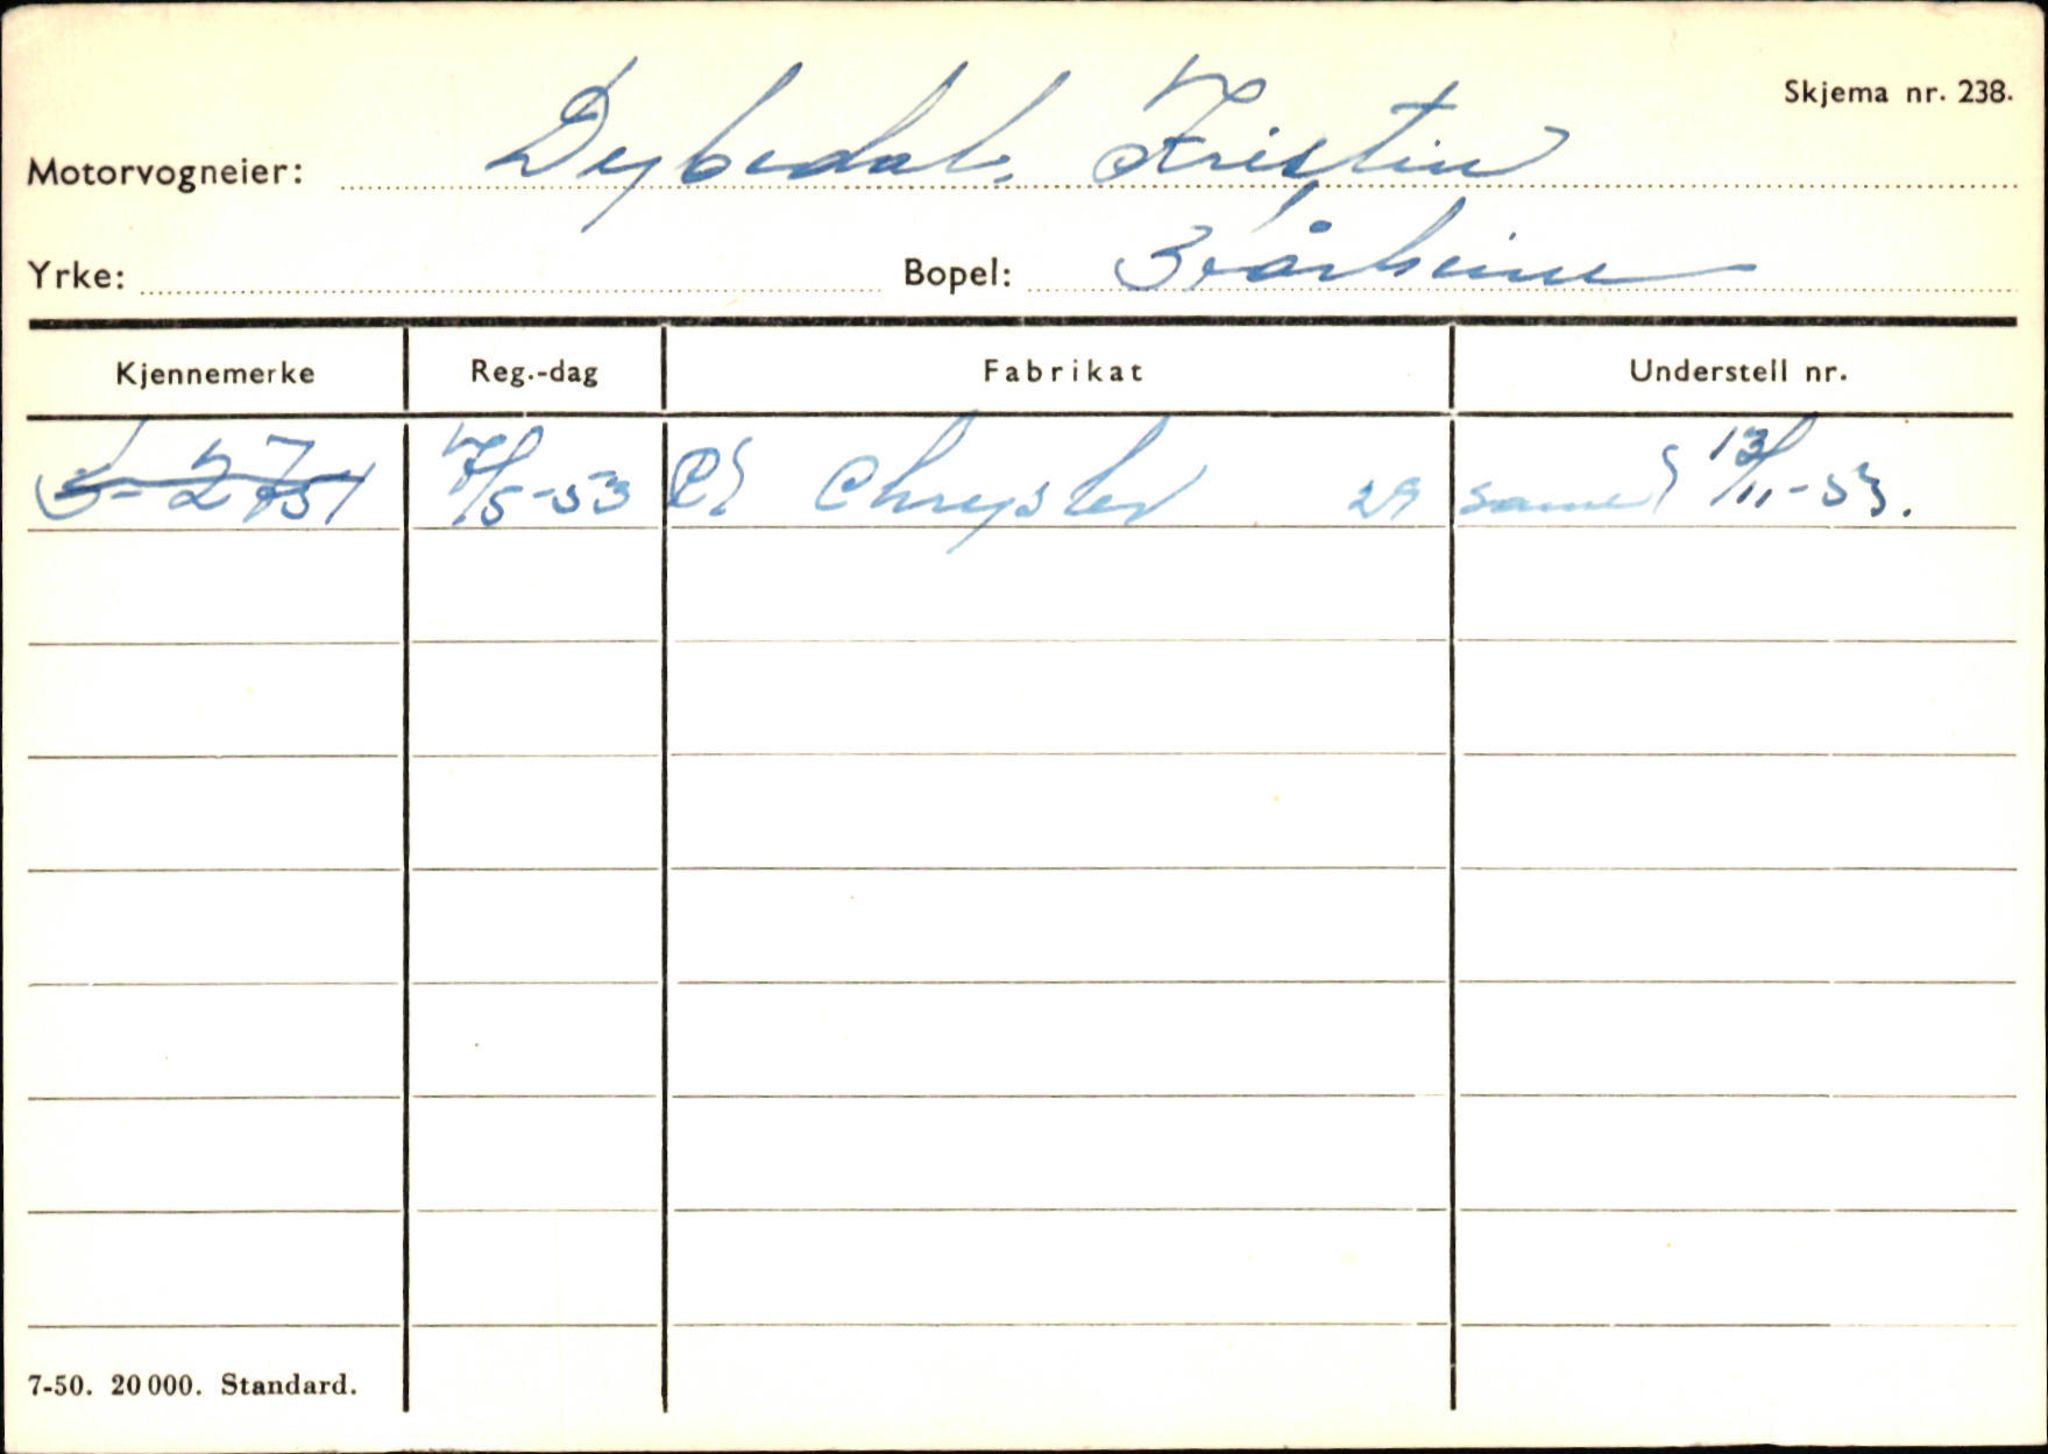 Skjema nr. 238.
Motorvogneier: Dybedal, Kristin
Yrke: Bopel: Bårheim
Kjennemerke Reg.-dag Fabrikat Understell nr.
S-2751 7/5-53 P Chrysler 29 same 13/11-53.
7-50. 20 000. Standard.